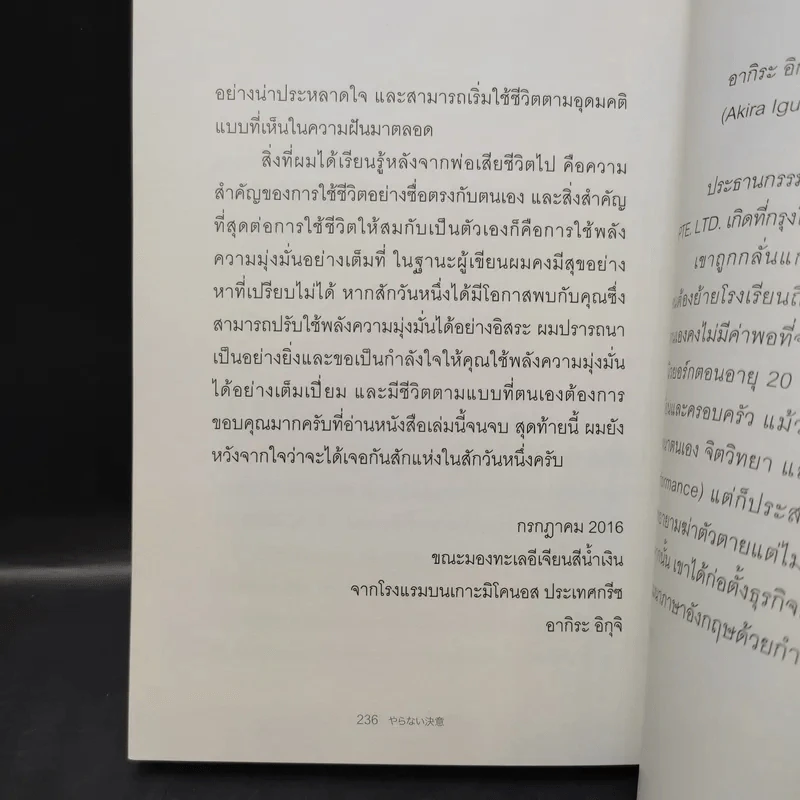 อย่างน่าประหลาดใจ และสามารถเริ่มใช้ชีวิตตามอุดมคติ
แบบที่เห็นในความฝันมาตลอด
สิ่งที่ผมได้เรียนรู้หลังจากพ่อเสียชีวิตไป คือความ
สำคัญของการใช้ชีวิตอย่างซื่อตรงกับตนเอง และสิ่งสำคัญ
ที่สุดต่อการใช้ชีวิตให้สมกับเป็นตัวเองก็คือการใช้พลัง
ความมุ่งมั่นอย่างเต็มที่ ในฐานะผู้เขียนผมคงมีสุขอย่าง
หาที่เปรียบไม่ได้ หากสักวันหนึ่งได้มีโอกาสพบกับคุณซึ่ง
สามารถปรับใช้พลังความมุ่งมั่นได้อย่างอิสระ ผมปรารถนา
เป็นอย่างยิ่งและขอเป็นกำลังใจให้คุณใช้พลังความมุ่งมั่น
ได้อย่างเต็มเปี่ยม และมีชีวิตตามแบบที่ตนเองต้องการ
ขอบคุณมากครับที่อ่านหนังสือเล่มนี้จนจบ สุดท้ายนี้ ผมยัง
หวังจากใจว่าจะได้เจอกันสักแห่งในสักวันหนึ่งครับ
กรกฎาคม 2016
ขณะมองทะเลอีเจียนสีน้ำเงิน
จากโรงแรมบนเกาะมิโคนอส ประเทศกรีซ
อากิระ อิกุจิ
236 やらない決意
อากิระ
(Akira
PTE. LTD. เกิดที่กรุง
เขาถูกกลั่น
ต้องย้ายโรงเรียน
คงไม่มีค่าพอที่
ตอนอายุ 20
และครอบครัว แม้
ตนเอง จิตวิทยา
แต่ก็
ฆ่าตัวตายแต่
เขาได้ก่อตั้งธุรกิจ
ภาษาอังกฤษด้วย